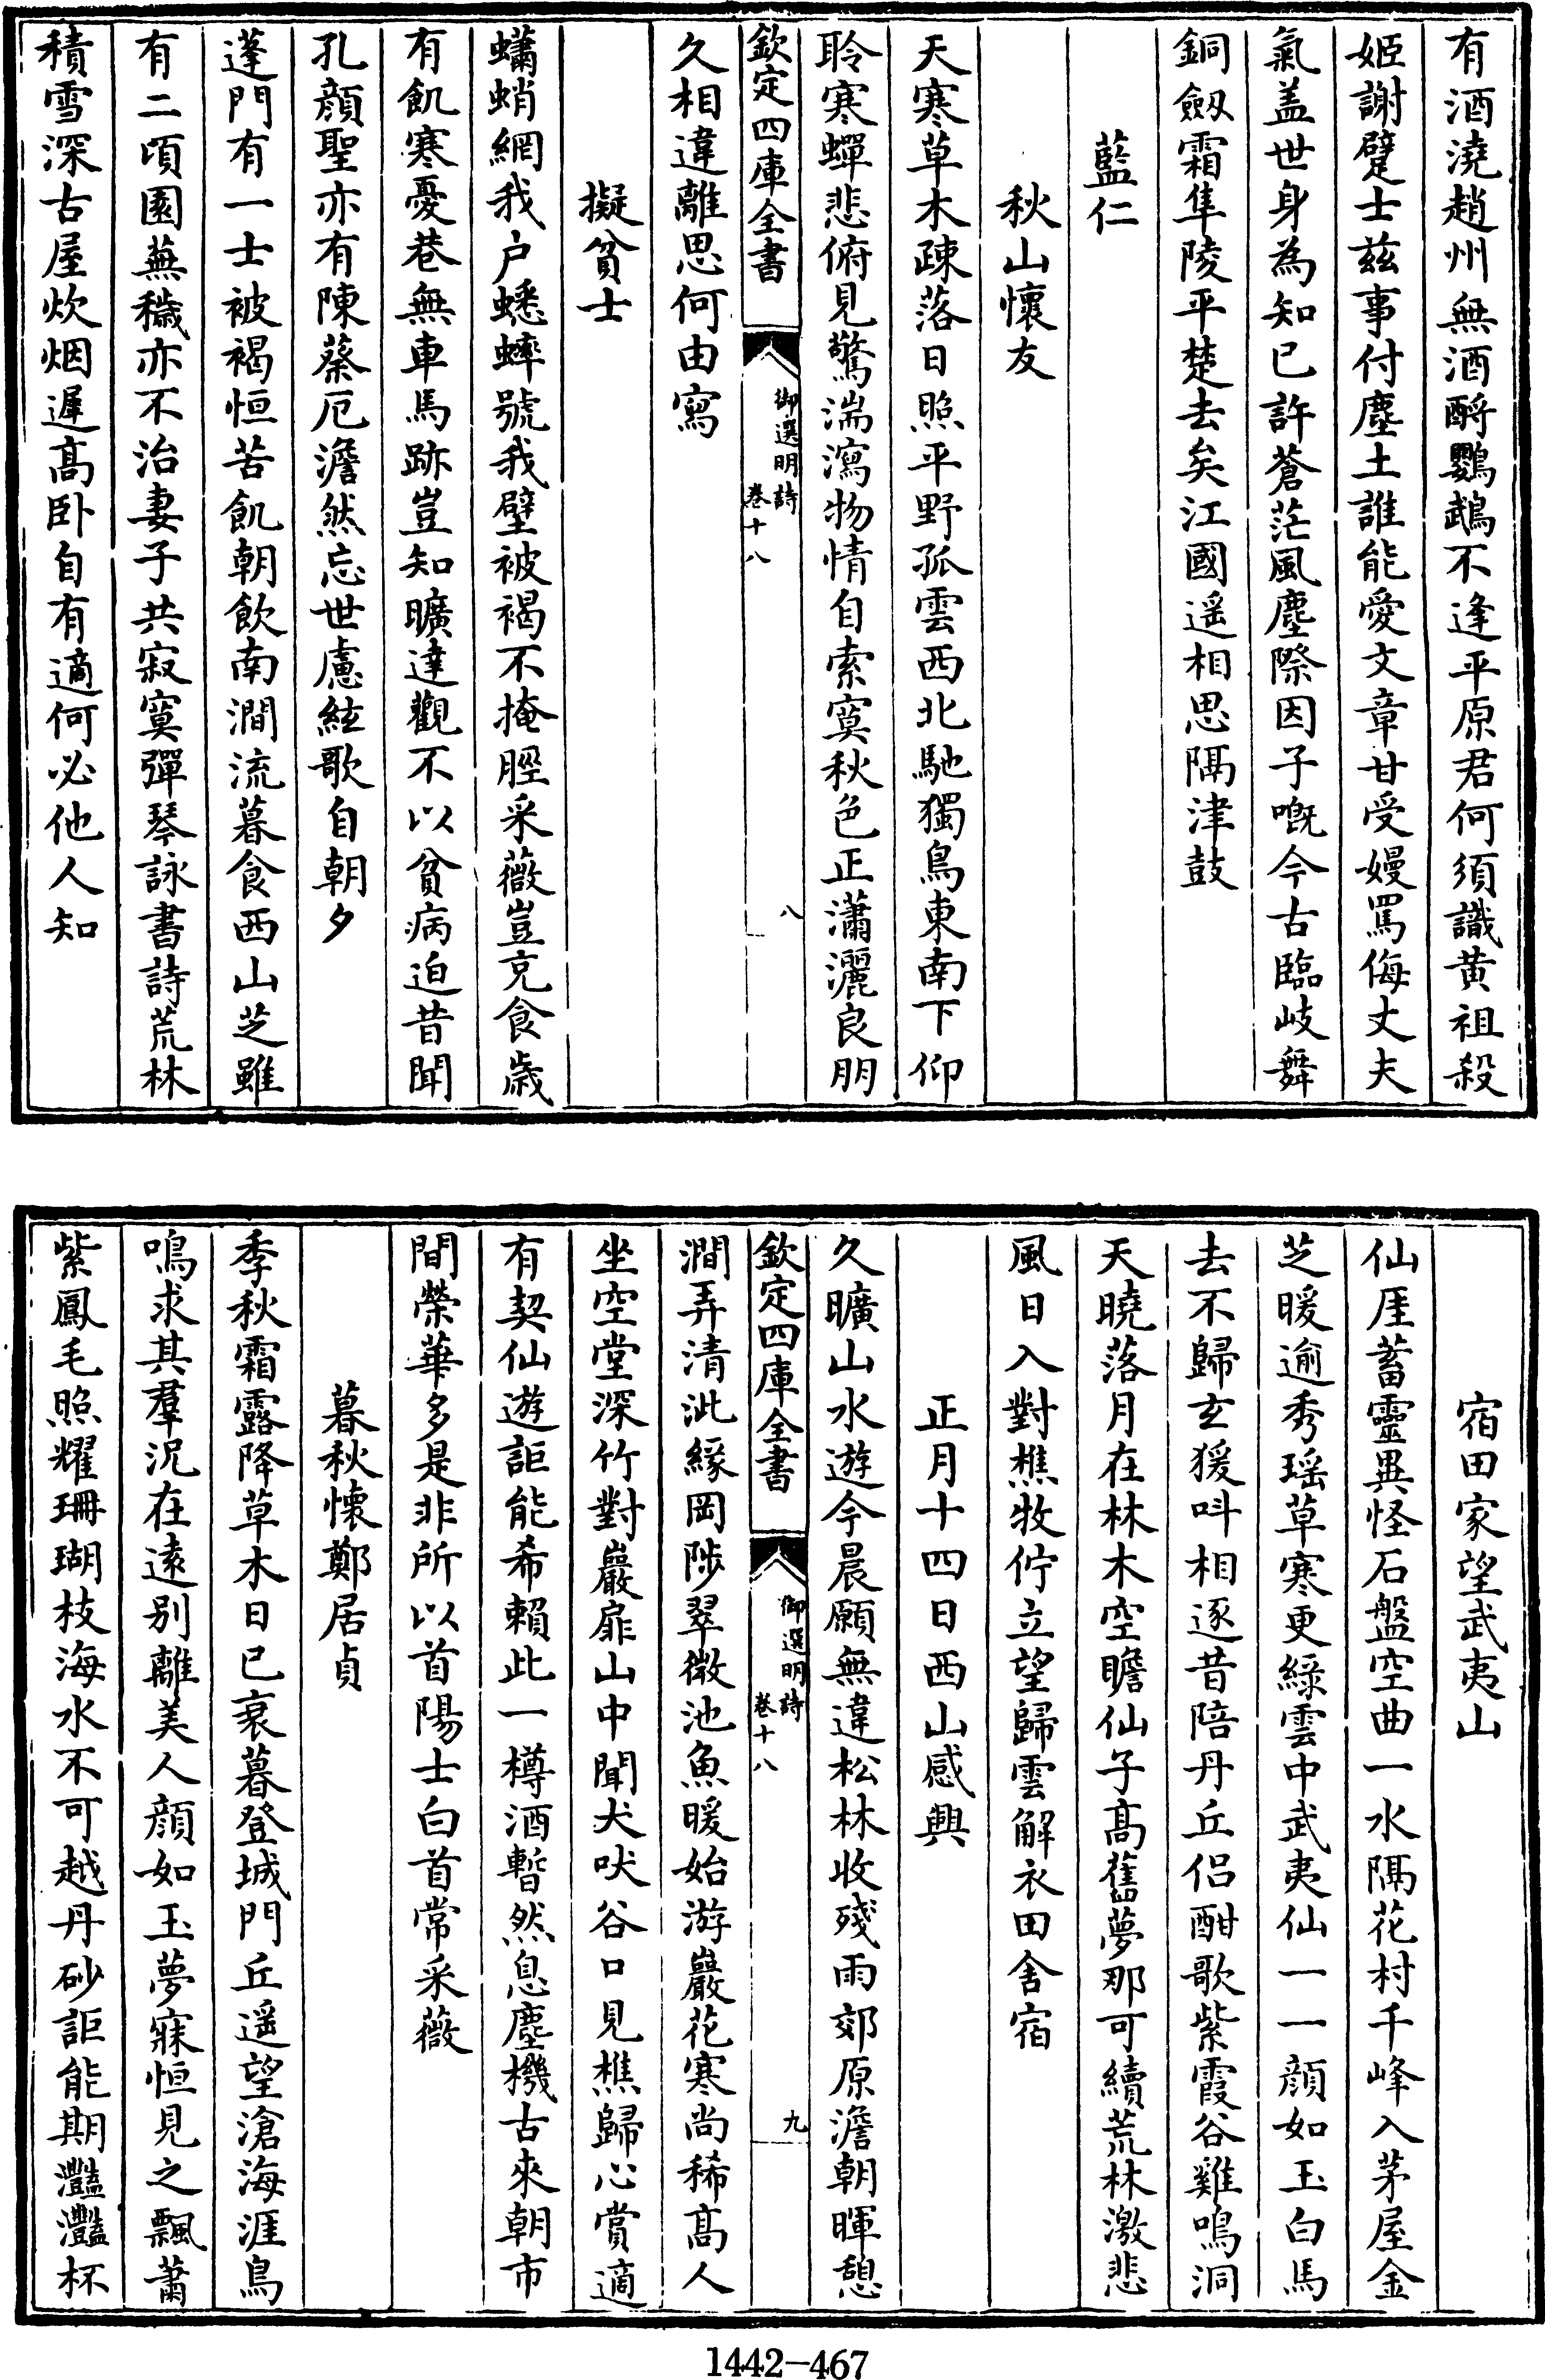 有酒澆趙州無酒酹鸚鵡不逢平原君何須識黃祖殺
姬謝躄士茲事付塵土誰能愛文章甘受嫚罵侮丈夫
氣盖世身為知已許蒼茫風塵際因子嘅今古臨岐舞
銅劔霜隼陵平楚去矣江國遥相思隔津鼓
藍仁
秋山懷友
天寒草木疎落日照平野孤雲西北馳獨鳥東南下仰
聆寒蟬悲俯見驚湍瀉物情自索寞秋色正瀟灑良朋
欽定四庫全書
御選明詩
卷十八
八
久相違離思何由寫
擬貧士
蠨蛸網我户蟋蟀號我壁被褐不掩脛采薇豈克食歲
有飢寒憂巷無車馬跡豈知曠達觀不以貧病迫昔聞
孔顔聖亦有陳蔡厄澹然忘世慮絃歌自朝夕
蓬門有一士被褐恒苦飢朝飲南澗流暮食西山芝雖
有二頃園蕪穢亦不治妻子共寂寞彈琴詠書詩荒林
積雪深古屋炊烟遲高卧自有適何必他人知
宿田家望武夷山
仙厓蓄靈異怪石盤空曲一水隔花村千峰入茅屋金
芝暖逾秀瑶草寒更緑雲中武夷仙一一顔如玉白馬
去不歸玄猨呌相逐昔陪丹丘侣酣歌紫霞谷雞鳴洞
天曉落月在林木空瞻仙子髙舊夢那可續荒林激悲
風日入對樵牧佇立望歸雲解衣田舍宿
正月十四日西山感興
久曠山水遊今晨願無違松林收殘雨郊原澹朝暉憩
欽定四庫全書
御選明詩
卷十八
九
澗弄清泚緣岡陟翠微池魚暖始游巖花寒尚稀髙人
坐空堂深竹對巖扉山中聞犬吠谷口見樵歸心賞適
有契仙遊詎能希賴此一樽酒暫然息塵機古來朝市
間榮華多是非所以首陽士白首常采薇
暮秋懷鄭居貞
季秋霜露降草木日已衰暮登城門丘遥望滄海涯鳥
鳴求其羣況在遠别離美人顔如玉夢寐恒見之飄蕭
紫鳳毛照耀珊瑚枝海水不可越丹砂詎能期灔灔杯
1442-467